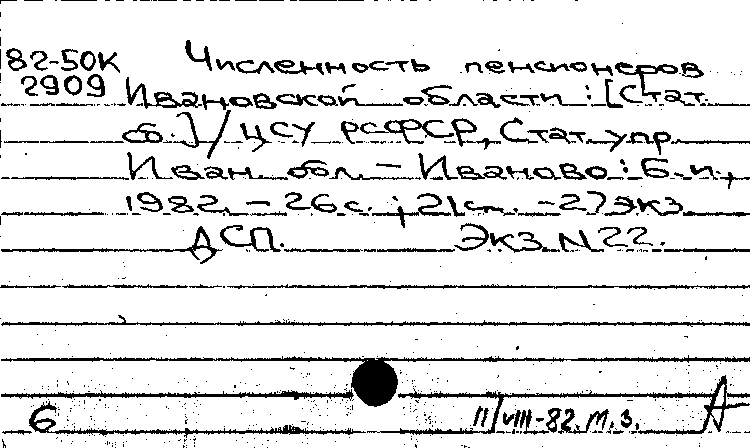 82-50К Численность пенсионеров
2909 Ивановской области: [Стат.
сб.] / ЦСУ РСФСР, Стат. упр.
Иван. обл. – Иваново: Б.и.,
1982. – 26 с.; 21 см. – 27 экз.
ДСП. Экз. N 22.
6 11/VIII-82. М.З. А